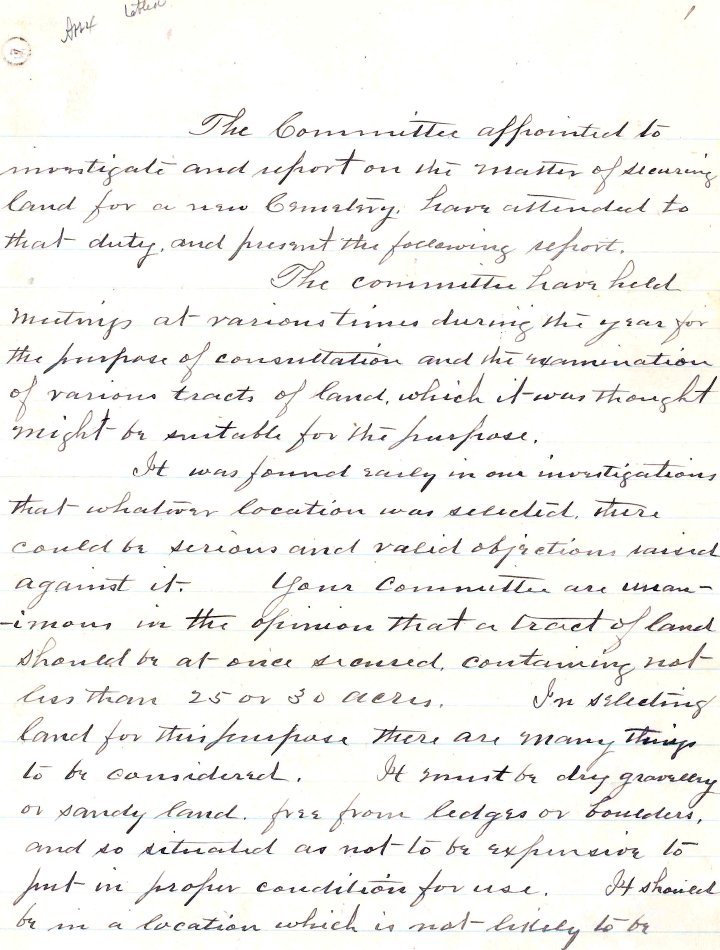 1
The Committee appointed to
investigate and report on the matter of securing
land for a new Cemetery, have attended to
that duty, and present the following report.
The committee have held
meetings at various times during the year for
the purpose of consultation and the examination
of various tracts of land, which it was thought
might be suitable for the purpose.
It was found early in our investigations
that whatever location was selected, there
could be serious and valid objections raised
against it. Your Committee are unan-
-imous in the opinion that a tract of land
should be at once secured, containing not
less than 25 or 30 acres. In selecting
land for this purpose there are many things
to be considered. It must be dry gravelly
or sandy land, free from ledges or boulders,
and so situated as not to be expensive to
put in proper condition for use. It should
be in a location which is not likely to be